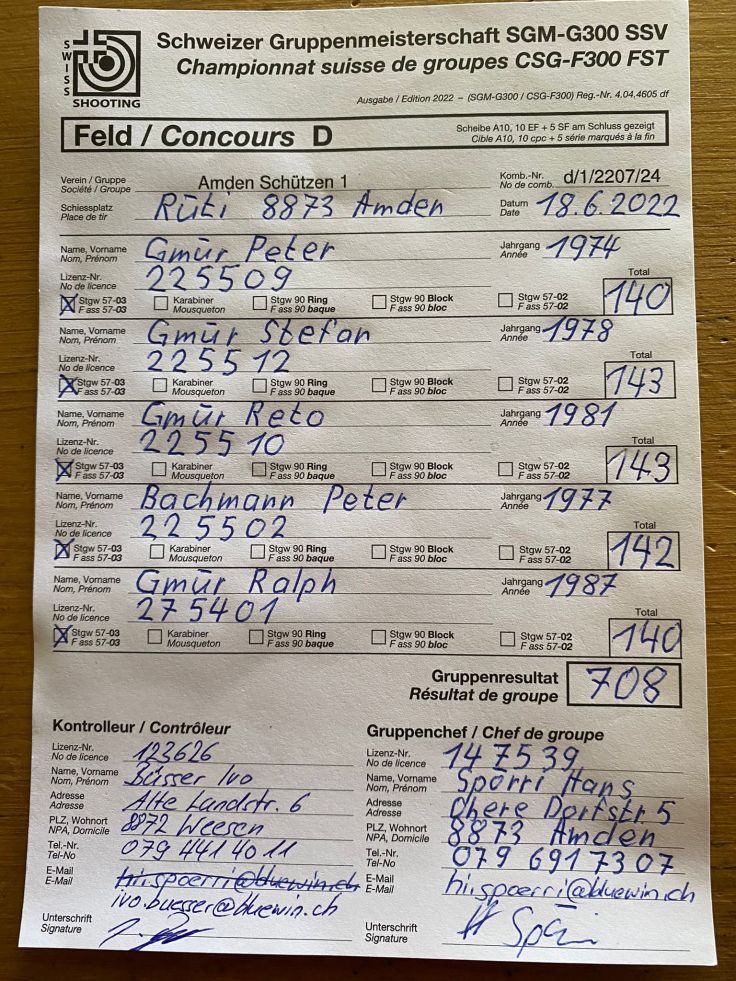 SWISS
SHOOTING
Schweizer Gruppenmeisterschaft SGM-G300 SSV
Championnat suisse de groupes CSG-F300 FST
Ausgabe / Edition 2022 – (SGM-G300 / CSG-F300) Reg.-Nr. 4.04.4605 df
Feld / Concours D
Scheibe A10, 10 EF + 5 SF am Schluss gezeigt
Cible A10, 10 cpc + 5 série marqués à la fin
Verein / Gruppe
Société / Groupe
Amden Schützen 1
Komb.-Nr.
No de comb.
d/1/2207/24
Schiessplatz
Place de tir
Rüti 8873 Amden
Datum
Date
18.6.2022
Name, Vorname
Nom, Prénom
Gmür Peter
Jahrgang
Année
1974
Lizenz-Nr.
No de licence
225509
Total
Stgw 57-03
F ass 57-03
Karabiner
Mousqueton
Stgw 90 Ring
F ass 90 baque
Stgw 90 Block
F ass 90 bloc
Stgw 57-02
F ass 57-02
140
Name, Vorname
Nom, Prénom
Gmür Stefan
Jahrgang
Année
1978
Lizenz-Nr.
No de licence
225512
Total
Stgw 57-03
F ass 57-03
Karabiner
Mousqueton
Stgw 90 Ring
F ass 90 baque
Stgw 90 Block
F ass 90 bloc
Stgw 57-02
F ass 57-02
143
Name, Vorname
Nom, Prénom
Gmür Reto
Jahrgang
Année
1981
Lizenz-Nr.
No de licence
225510
Total
Stgw 57-03
F ass 57-03
Karabiner
Mousqueton
Stgw 90 Ring
F ass 90 baque
Stgw 90 Block
F ass 90 bloc
Stgw 57-02
F ass 57-02
143
Name, Vorname
Nom, Prénom
Bachmann Peter
Jahrgang
Année
1977
Lizenz-Nr.
No de licence
225502
Total
Stgw 57-03
F ass 57-03
Karabiner
Mousqueton
Stgw 90 Ring
F ass 90 baque
Stgw 90 Block
F ass 90 bloc
Stgw 57-02
F ass 57-02
142
Name, Vorname
Nom, Prénom
Gmür Ralph
Jahrgang
Année
1987
Lizenz-Nr.
No de licence
275401
Total
Stgw 57-03
F ass 57-03
Karabiner
Mousqueton
Stgw 90 Ring
F ass 90 baque
Stgw 90 Block
F ass 90 bloc
Stgw 57-02
F ass 57-02
140
Gruppenresultat
Résultat de groupe
708
Kontrolleur / Contrôleur
Lizenz-Nr.
No de licence
123626
Name, Vorname
Nom, Prénom
Büsser Ivo
Adresse
Adresse
Alte Landstr. 6
PLZ, Wohnort
NPA, Domicile
8872 Weesen
Tel.-Nr.
Tel-No
079 441 40 11
E-Mail
E-Mail
hi.spoerri@bluewin.ch
ivo.buesser@bluewin.ch
Unterschrift
Signature
Gruppenchef / Chef de groupe
Lizenz-Nr.
No de licence
147539
Name, Vorname
Nom, Prénom
Spörri Hans
Adresse
Adresse
Obere Dorfstr. 5
PLZ, Wohnort
NPA, Domicile
8873 Amden
Tel.-Nr.
Tel-No
079 691 73 07
E-Mail
E-Mail
hi.spoerri@bluewin.ch
Unterschrift
Signature